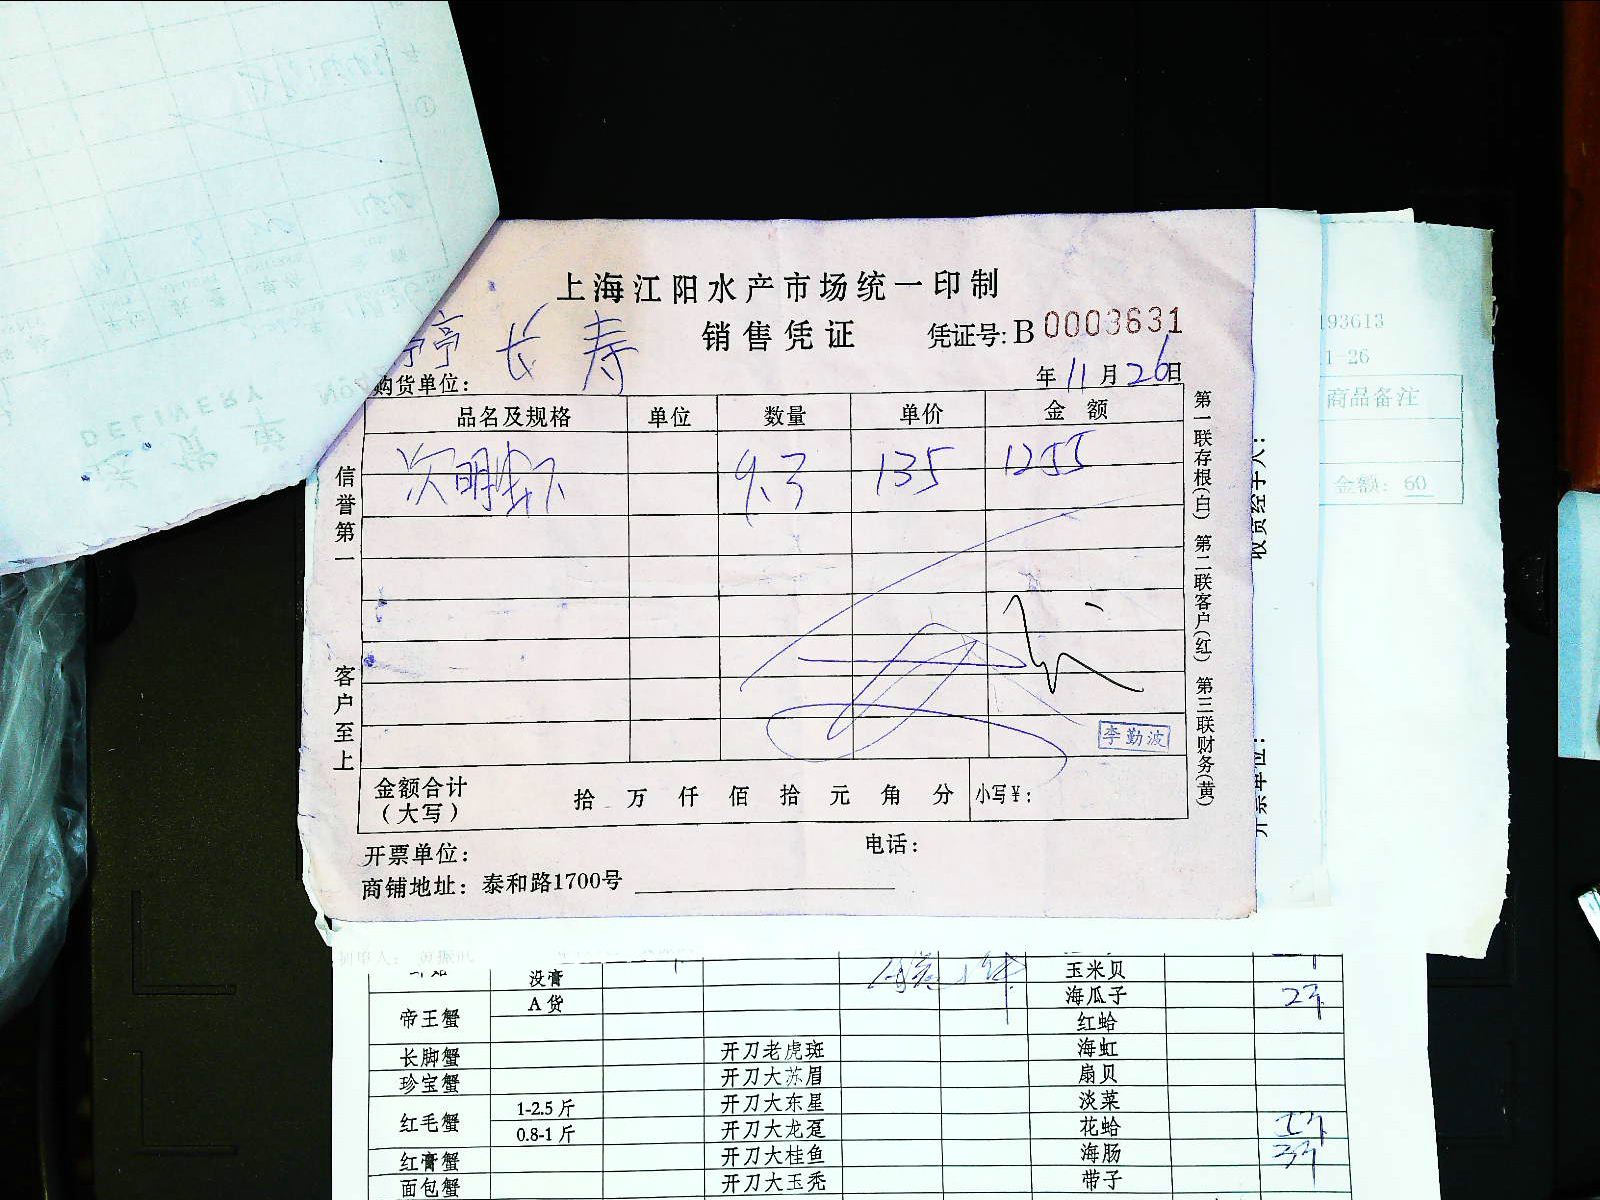 上海江阳水产市场统一印制
销售凭证 凭证号: B 0003631
亭 长 寿
购货单位: 年 11 月 26 日
品名及规格 单位 数量 单价 金额
次明虾 9.3 135 1255
信誉第一
客户至上
第一联存根(白) 第二联客户(红) 第三联财务(黄)
李勤波
金额合计(大写) 拾 万 仟 佰 拾 元 角 分 小写¥:
开票单位: 电话:
商铺地址: 泰和路1700号
193613
1-26
商品备注
金额: 60
DELIVERY
没膏 玉米贝
帝王蟹 A 货 海瓜子 2斤
红蛤
长脚蟹 开刀老虎斑 海虹
珍宝蟹 开刀大苏眉 扇贝
红毛蟹 1-2.5 斤 开刀大东星 淡菜
0.8-1 斤 开刀大龙趸 花蛤
红膏蟹 开刀大桂鱼 海肠 3斤
面包蟹 开刀大玉秃 带子